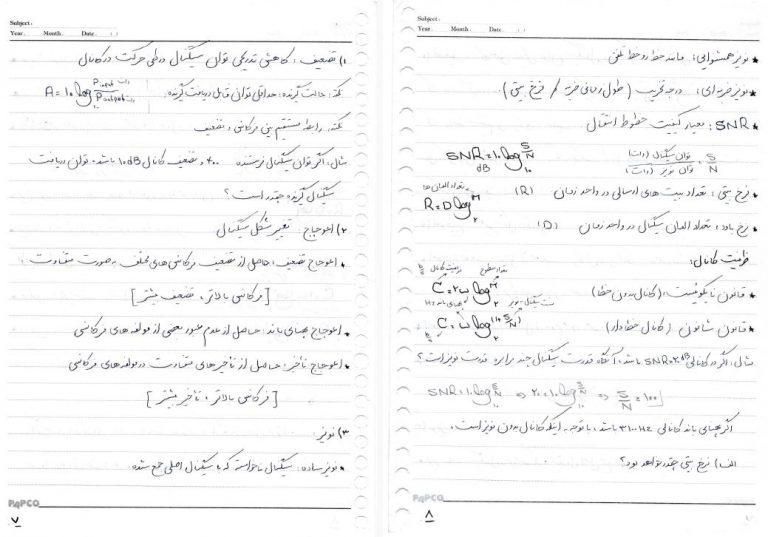 Subject:
Year. Month. Date.
۱) تضعیف: کاهش تدریجی توان سیگنال در طی حرکت در کانال
نکته: حالت گیرنده: حداقل توان قابل دریافت گیرنده. A = 10 log₁₀ Pinput وات / Poutput وات
نکته: رابطه مستقیم بین فرکانس و تضعیف
مثال: اگر توان سیگنال فرستنده و تضعیف کانال 10dB باشد. توان دریافت
سیگنال گیرنده چقدر است؟
۲) اعوجاج: تغییر شکل سیگنال
• اعوجاج تضعیف: حاصل از تضعیف فرکانس های مختلف به صورت متفاوت:
[فرکانس بالاتر، تضعیف بیشتر]
• اعوجاج پهنای باند: حاصل از عدم عبور بعضی از مولفه های فرکانسی
• اعوجاج تأخیر: حاصل از تأخیرهای متفاوت در مولفه های فرکانسی
[فرکانس بالاتر، تأخیر بیشتر]
۳) نویز:
• نویز ساده: سیگنال ناخواسته که با سیگنال اصلی جمع شده
PAPCO
۷
Subject:
Year. Month. Date.
• نویز همشنوایی: مانند خط رو خط تلفن
• نویز ضربه ای: درجه تخریب (طول زمانی ضربه / نرخ بیتی)
• SNR: معیار کیفیت خطوط انتقال
SNR dB = 10 log₁₀ S/N توان سیگنال (وات) / توان نویز (وات) = S/N
• نرخ بیتی: تعداد بیت های ارسالی در واحد زمان (R) R = D log₂ M تعداد المان ها
• نرخ باود: تعداد المان سیگنال در واحد زمان (D)
ظرفیت کانال:
• قانون نایکوئیست: (کانال بدون خطا) C = 2W log₂ M ظرفیت کانال تعداد سطوح پهنای باند Hz
• قانون شانون (کانال خطادار) C = W log₂ (1+S/N) نسبت سیگنال به نویز
مثال: اگر در کانالی SNR=20dB باشد، آنگاه قدرت سیگنال چند برابر قدرت نویز است؟
SNR = 10 log₁₀ S/N ⇒ 20 = 10 log₁₀ S/N ⇒ S/N = 100
اگر پهنای باند کانالی 3100Hz باشد، با توجه به اینکه کانال بدون نویز است.
الف) نرخ بیتی چقدر خواهد بود؟
PAPCO
۸